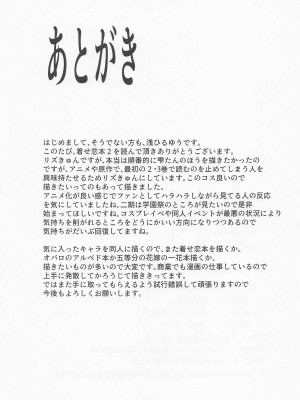 あとがき
はじめまして、そうでない方も、浅ひるゆうです。
このたび、着せ恋本2を読んで頂きありがとうございます。
リズきゅんですが、本当は順番的に雫たんのほうを描きたかったの
ですが、アニメや原作で、最初の2・3巻で読むのを止めてしまう人を
興味持たせるためリズきゅんにしています。このコス良いので
描きたいってのもあって描きました。
アニメ化が良い感じでファンとしてハラハラしながら見てる人の反応
を気にしていましたね。二期は学園祭のところが見たいので是非
始まってほしいですね。コスプレイベや同人イベントが最悪の状況により
気持ちを削がれるところをどうにかいい方向になりつつあるので
気持ちがだいぶ回復してますね。
気に入ったキャラを同人に描くので、また着せ恋本を描くか。
オバロのアルベド本か五等分の花嫁の一花本描くか。
描きたいものが多いので大変です。商業でも漫画の仕事しているので
上手に発散してかろうじて描ききってます。
ではまた手に取ってもらえるよう試行錯誤して頑張りますので
今後もよろしくお願いします。